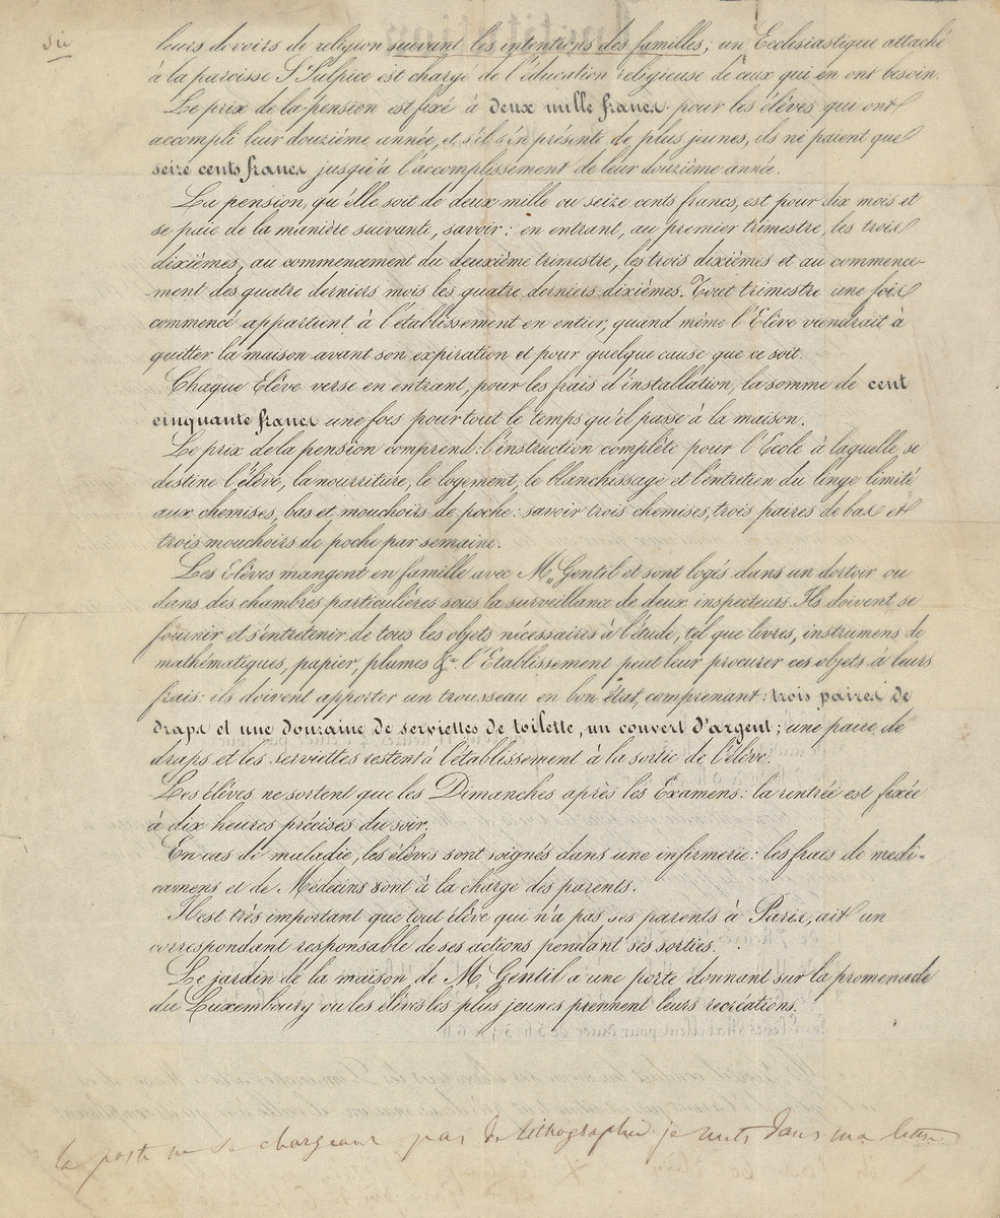 sic
leurs devoirs de religion suivant les intentions des familles; un Ecclesiastique attaché
à la paroisse St Sulpice est chargé de l'éducation religieuse de ceux qui en ont besoin.
Le prix de la pension est fixé à deux mille francs pour les élèves qui ont
accompli leur douzième année, et s'il s'en présente de plus jeunes, ils ne paient que
seize cents francs jusqu'à l'accomplissement de leur douzième année.
La pension, qu'elle soit de deux mille ou seize cents francs, est pour dix mois et
se paie de la manière suivante, savoir: en entrant, au premier trimestre, les trois
dixièmes, au commencement du deuxième trimestre, les trois dixièmes et au commence-
-ment des quatre derniers mois les quatre derniers dixièmes. Tout trimestre une fois
commencé appartient à l'établissement en entier, quand même l'Elève viendrait à
quitter la maison avant son expiration et pour quelque cause que ce soit.
Chaque Elève verse en entrant, pour les frais d'installation, la somme de cent
cinquante francs une fois pour tout le temps qu'il passe à la maison.
Le prix de la pension comprend: l'instruction complète pour l'Ecole à laquelle se
destine l'élève, la nourriture, le logement, le blanchissage et l'entretien du linge limité
aux chemises, bas et mouchoirs de poche: savoir trois chemises, trois paires de bas et
trois mouchoirs de poche par semaine.
Les Elèves mangent en famille avec Mr Gentil et sont logés dans un dortoir ou
dans des chambres particulières sous la surveillance de deux inspecteurs. Ils doivent se
fournir et s'entretenir de tous les objets nécessaires à l'étude, tel que livres, instrumens de
mathématiques, papier, plumes &a. l'Etablissement peut leur procurer ces objets à leurs
frais: ils doivent apporter un trousseau en bon état, comprenant: trois paires de
draps et une douzaine de serviettes de toilette, un couvert d'argent; une paire de
draps et les serviettes restent à l'établissement à la sortie de l'élève.
Les élèves ne sortent que les Dimanches après les Examens: la rentrée est fixée
à dix heures précises du soir.
En cas de maladie, les élèves sont soignés dans une infirmerie: les frais de medi-
camens et de Médecins sont à la charge des parents.
Il est très important que tout élève qui n'a pas ses parents à Paris, ait un
correspondant responsable de ses actions pendant ses sorties.
Le jardin de la maison de M. Gentil a une porte donnant sur la promenade
du Luxembourg ou les élèves les plus jeunes prennent leurs recréations.
la poste ne se chargeant pas de lithographie je mets dans ma lettre